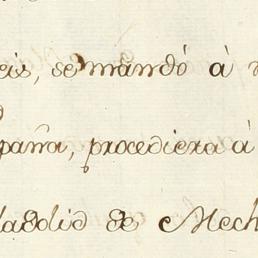 eis, se mandó à
paña, procediera à
ladolid de Mech